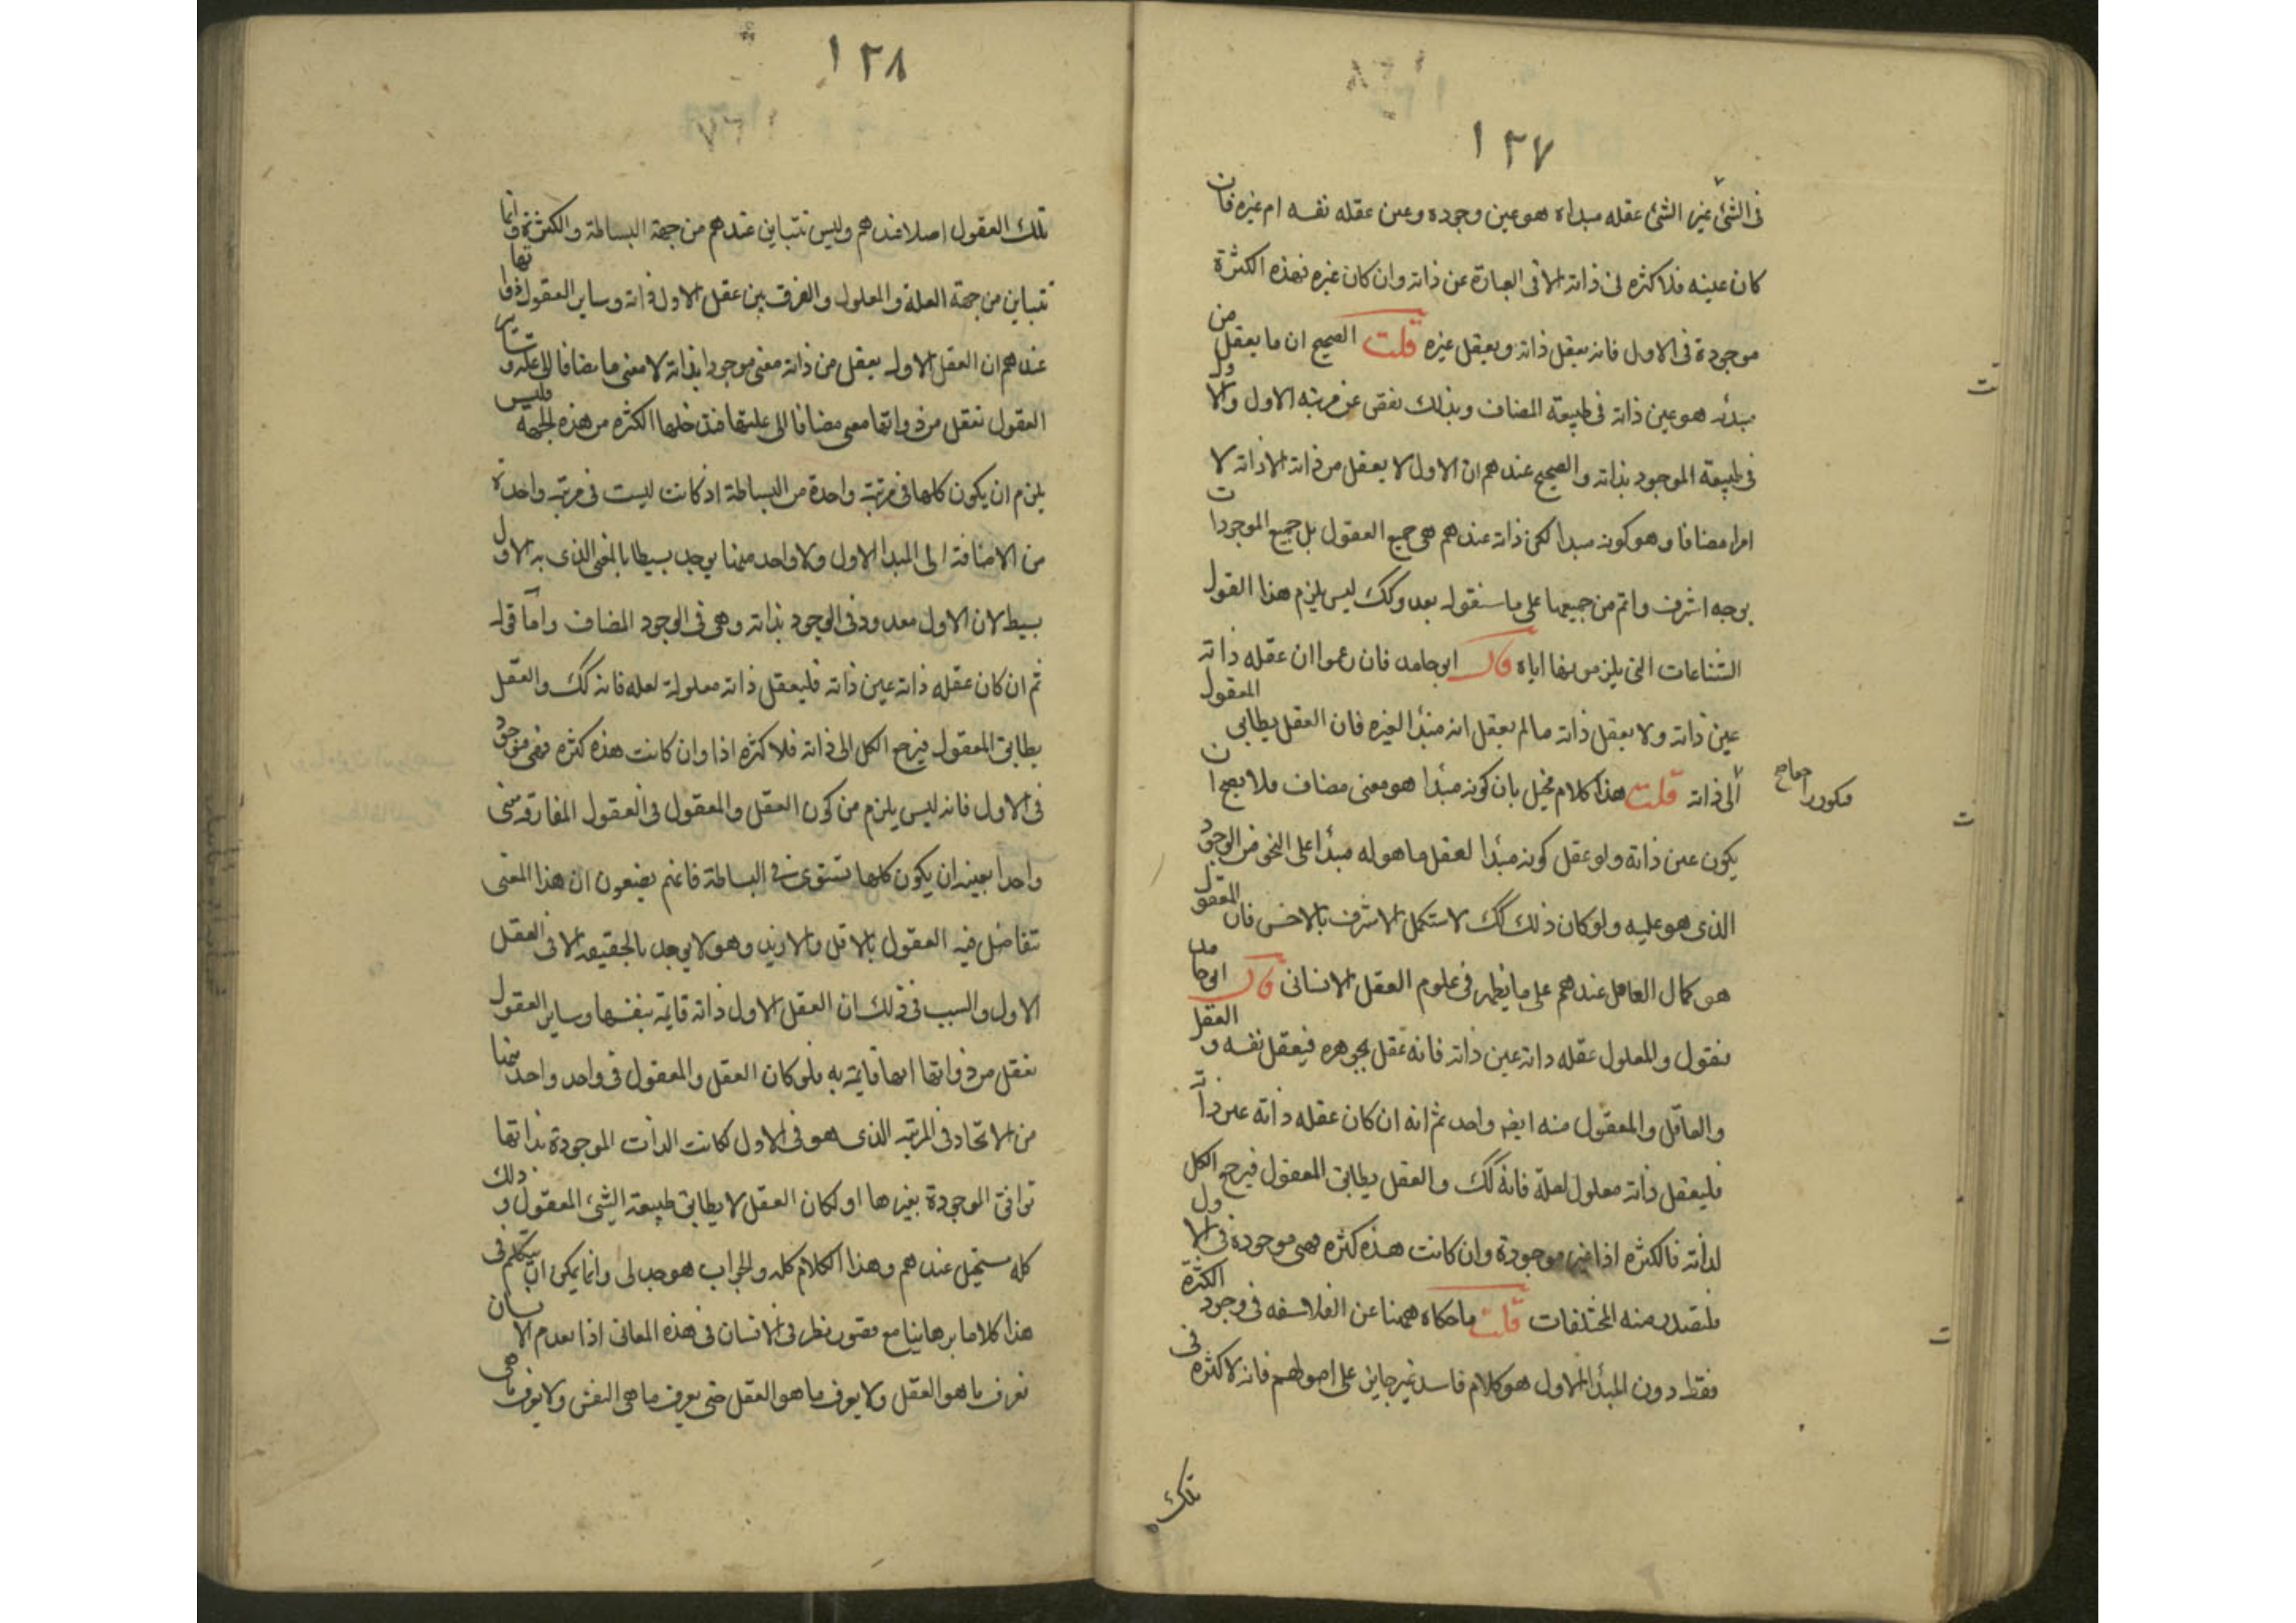 ١٢٧
فى الشئ غير الشئ عقله مبداه هو عين وجوده وعين عقله نفسه ام غيره فان
كان عينه فلا كثره فى ذاته الا فى العبارة عن ذاته وان كان غيره فهذه الكثرة
موجودة فى الاول فانه يعقل ذاته ويعقل غيره قلت الصحيح ان ما يعقل من
مبدئه هو عين ذاته فى طبيعة المضاف وبذلك نقص عن مرتبه الاول والاول
فى طبيعة الموجود بذاته والصحيح عندهم ان الاول لا يعقل من ذاته الا ذاته لا
امرا مضافا وهو كونه مبدا لكن ذاته عندهم هى جميع العقول بل جميع الموجودات
بوجه اشرف واتم من جميعها على ما سنقوله بعد وكك ليس يلزم هذا القول
الشناعات التى يلزمونها اياه قال ابو حامد فان زعموا ان عقله ذاته
عين ذاته ولا يعقل ذاته ما لم يعقل انه مبدٔا لغيره فان العقل يطابق المعقول
الى ذاته قلت هذا كلام مخيل بان كونه مبدٔا هو معنى مضاف فلا يصح ان
يكون عين ذاته ولو عقل كونه مبدٔا لعقل ما هو له مبدٔا على النحو من الوجود
الذى هو عليه ولو كان ذلك كك لاستكمل الاشرف بالاخس فان المعقول
هو كمال العاقل عندهم على ما يظهر فى علوم العقل الانسانى قال ابو حامد
فنقول والمعلول عقله ذاته عين ذاته فانه عقل بجوهره فيعقل نفسه والعقل
والعاقل والمعقول منه ايضا واحد ثم انه ان كان عقله ذاته عين ذاته
فليعقل ذاته معلول لعلة فانه كك والعقل يطابق المعقول فيرجع الكل
لذاته فالكثره اذا غير موجودة وان كانت هذه كثره فهى موجودة فى الاول
فلتصدر منه المختلفات قلت ما حكاه ههنا عن الفلاسفه فى وجود الكثرة
فقط دون المبدٔا الاول هو كلام فاسد غير جايز على اصولهم فانه لا كثره فى
تلك
١٢٨
تلك العقول اصلا عندهم وليس تتباين عندهم من جهة البساطة والكثرة وانما
تتباين من جهة العلة والمعلول والفرق بين عقل الاول ذاته وساير العقول ذواتها
عندهم ان العقل الاول يعقل من ذاته معنى موجودا بذاته لا معنى ما مضافا الى علة وساير
العقول تعقل من ذواتها معنى مضافا الى علتها فتدخلها الكثره من هذه الجهه فليس
يلزم ان يكون كلها فى مرتبة واحدة من البساطة اذ كانت ليست فى مرتبه واحدة
من الاضافة الى المبدا الاول ولا واحد منها يوجد بسيطا بالمعنى الذى به الاول
بسيط لان الاول معدود فى الوجود بذاته وهى فى الوجود المضاف واما قوله
ثم ان كان عقله ذاته عين ذاته فليعقل ذاته معلولة لعله فانه كك والعقل
يطابق المعقول فيرجع الكل الى ذاته فلا كثره اذا وان كانت هذه كثره فهى موجودة
فى الاول فانه ليس يلزم من كون العقل والمعقول فى العقول المفارقه معنى
واحدا بعينه ان يكون كلها تستوى فى البساطة فانهم يضعون ان هذا المعنى
تتفاضل فيه العقول بالاقل والازيد وهو لا يوجد بالحقيقه الا فى العقل
الاول والسبب فى ذلك ان العقل الاول ذاته قايمة بنفسها وساير العقول
تعقل من ذواتها انها قايمة به فلو كان العقل والمعقول فى واحد واحد منها
من الاتحاد فى المرتبه الذى هو فى الاول لكانت الذات الموجودة بذاتها
توافق الموجودة بغيرها او لكان العقل لا يطابق طبيعة الشئ المعقول وذلك
كله مستحيل عندهم وهذا الكلام كله والجواب هو جدلى وانما يمكن ان يتكلم فى
هذا كلاما برهانيا مع قصور نظر فى الانسان فى هذه المعانى اذا تقدم الانسان
فعرف ما هو العقل ولا يعرف ما هو العقل حتى يعرف ما هى النفس ولا يعرف ما هى